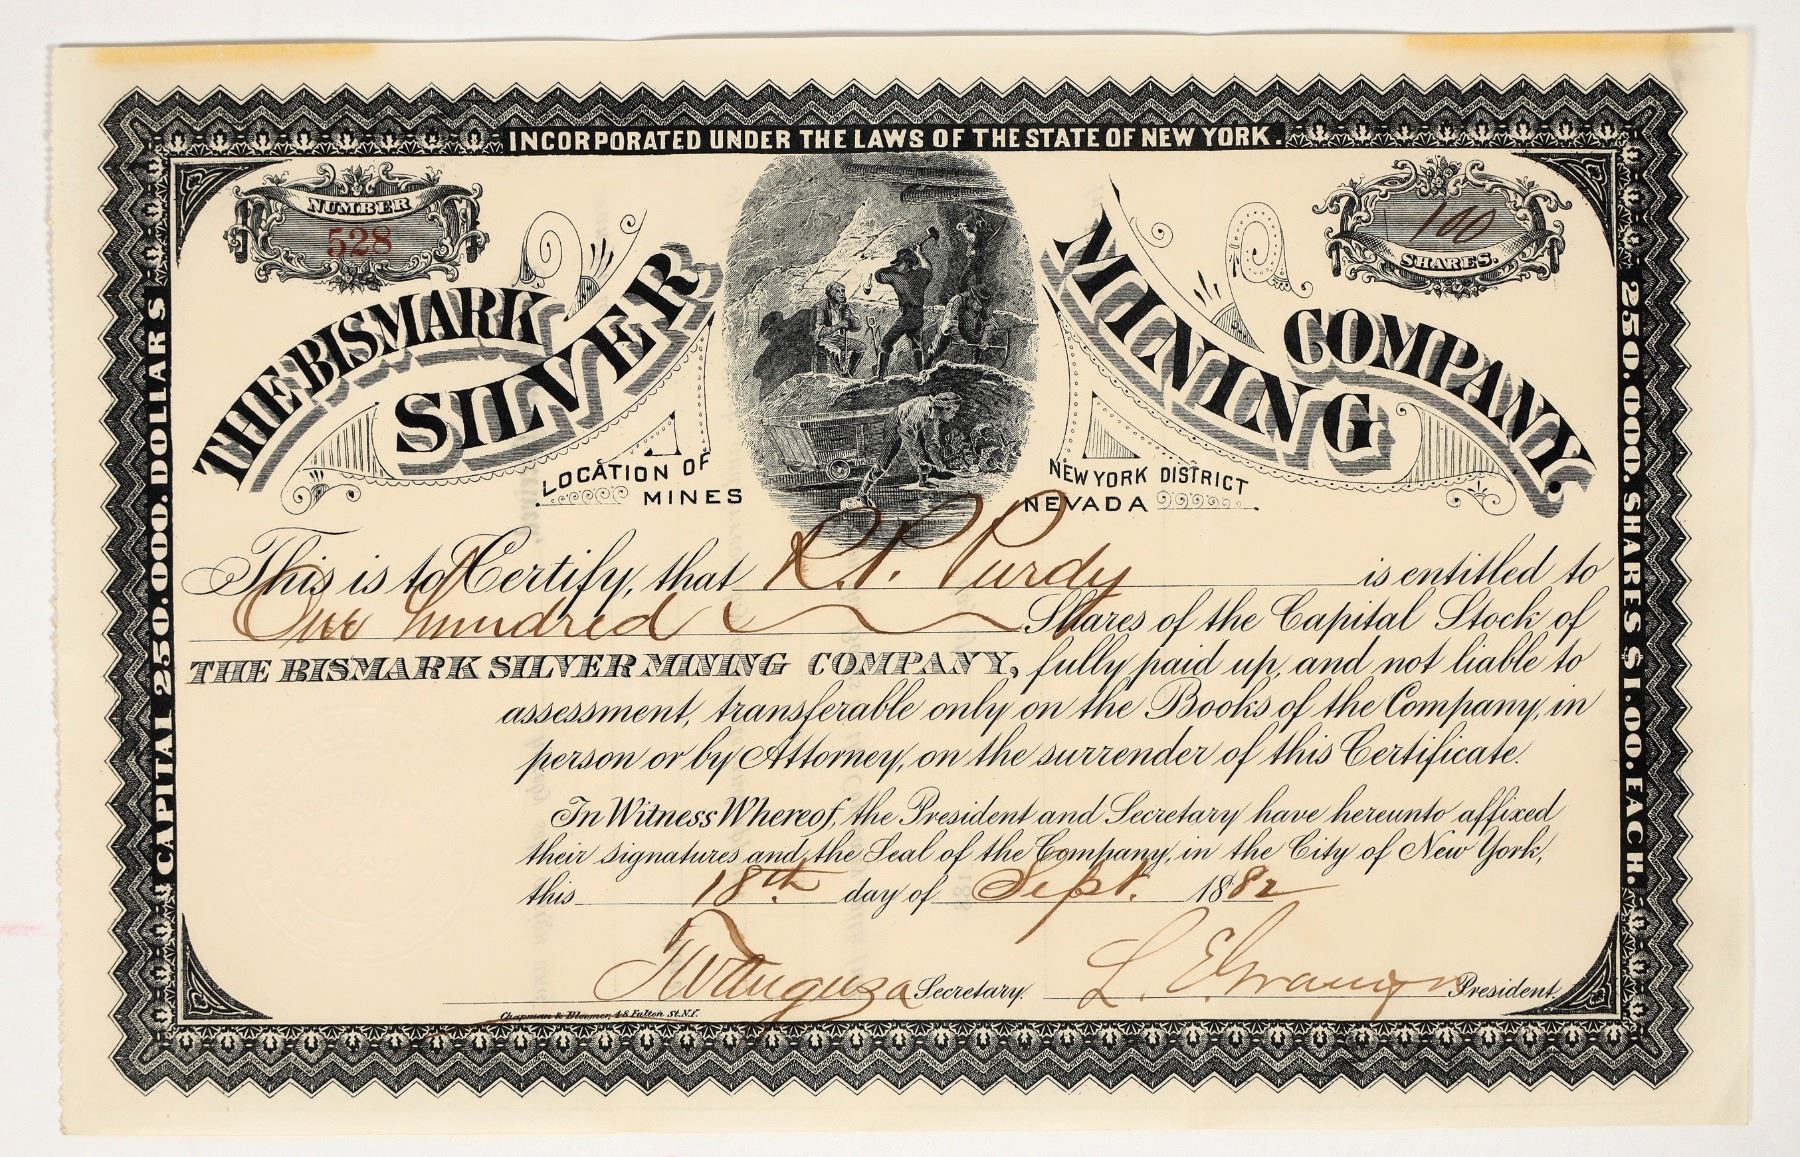 INCORPORATED UNDER THE LAWS OF THE STATE OF NEW YORK.
NUMBER
528
100
SHARES.
THE BISMARK
SILVER
MINING
COMPANY.
LOCATION OF
MINES
NEW YORK DISTRICT
NEVADA
CAPITAL 250.000. DOLLARS
250.000. SHARES $1.00. EACH.
This is to Certify, that R. P. Purdy is entitled to
One hundred Shares of the Capital Stock of
THE BISMARK SILVER MINING COMPANY, fully paid up, and not liable to
assessment, transferable only on the Books of the Company, in
person or by Attorney, on the surrender of this Certificate.
In Witness Whereof, the President and Secretary have hereunto affixed
their signatures and the Seal of the Company, in the City of New York,
this 18th day of Sept. 1882
Secretary. L. E. President.
Chapman & Bloomer, 48 Fulton St. N.Y.